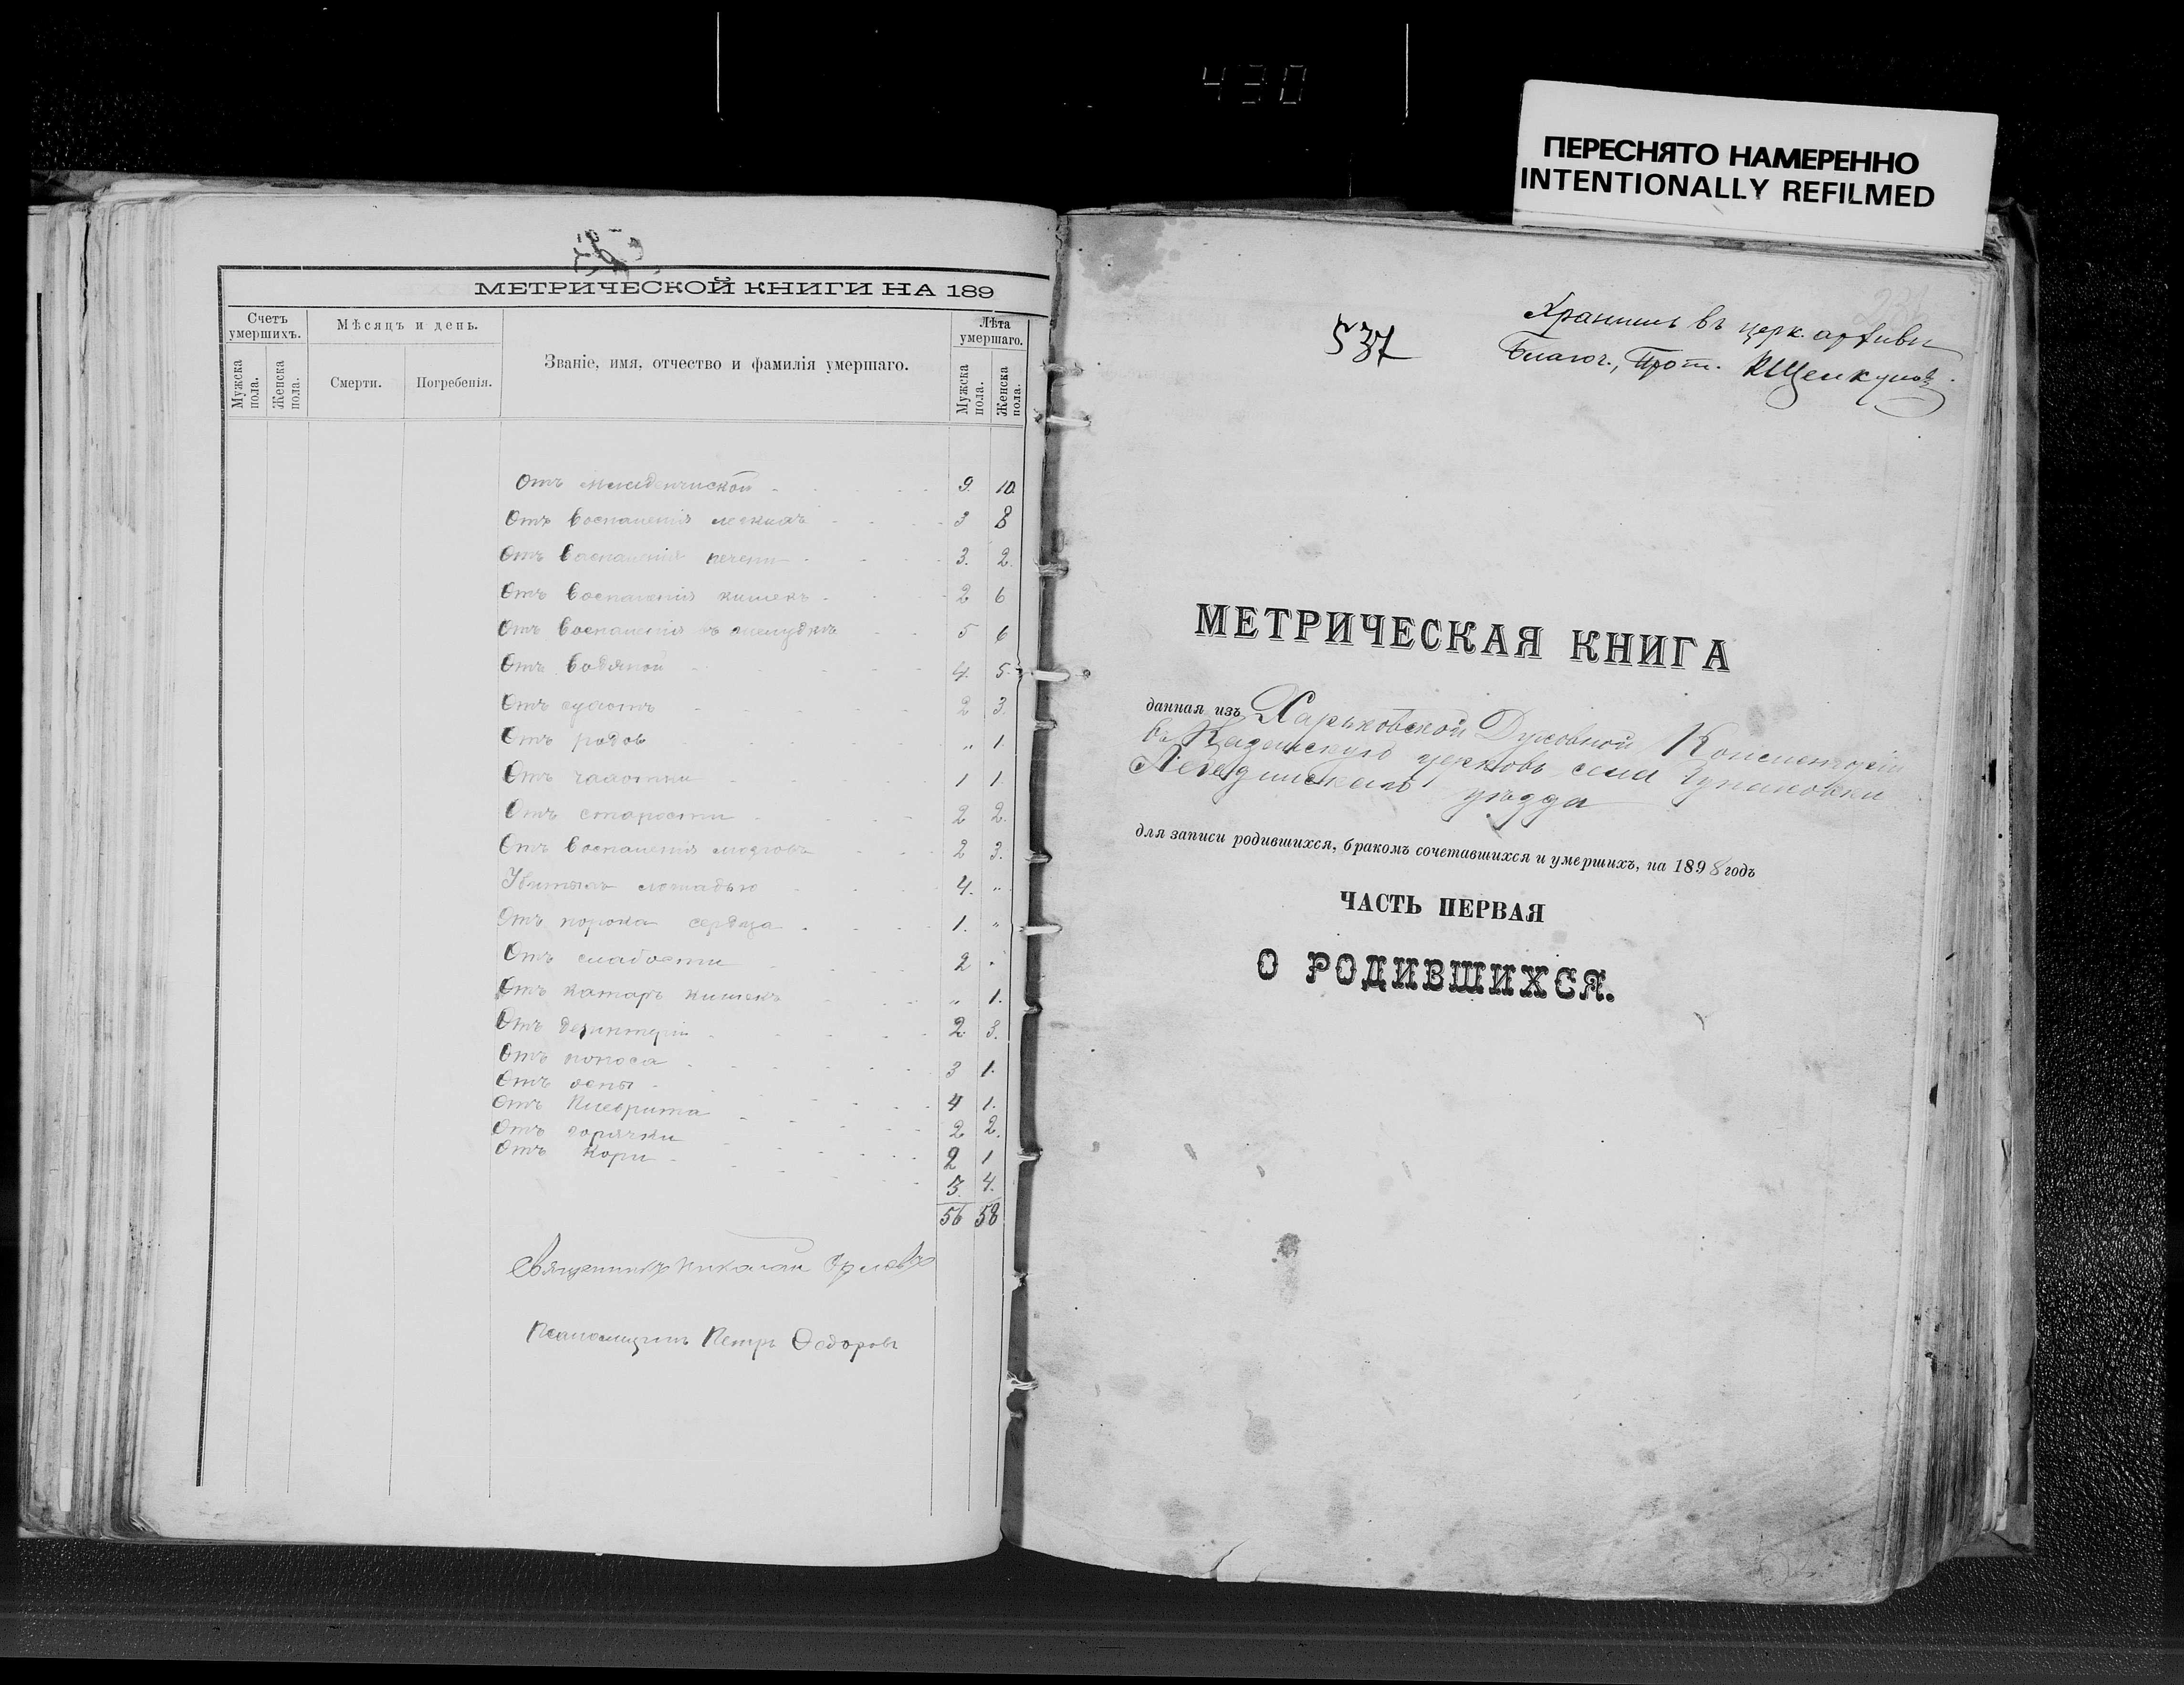 430
ПЕРЕСНЯТО НАМЕРЕННО
INTENTIONALLY REFILMED
МЕТРИЧЕСКОЙ КНИГИ НА 189
Счетъ умершихъ.
Мужска пола.
Женска пола.
Мѣсяцъ и день.
Смерти.
Погребенія.
Званіе, имя, отчество и фамилія умершаго.
Лѣта умершаго.
Мужска пола.
Женска пола.
Отъ младенческой 9. 10.
Отъ воспаленія легкихъ 3 8
Отъ воспаленія печени 3. 2.
Отъ воспаленія кишекъ 2 6
Отъ воспаленія въ желудкѣ 5 6
Отъ водяной 4. 5.
Отъ 2 3.
Отъ родов „ 1.
Отъ чахотки 1 1.
Отъ старости 2 2.
Отъ воспаленія мозговъ 2 3.
Убитыхъ лошадью 4. „
Отъ порока сердца 1. „
Отъ слабости 2 „
Отъ катаръ кишекъ „ 1.
Отъ дезинтеріи 2. 3.
Отъ поноса 3 1.
Отъ оспы 4 1.
Отъ Плеврита 2 2.
Отъ горячки 2 1
Отъ кори 3. 4.
56 58
Священникъ Николай Орловъ
Псаломщикъ Петръ Ѳедоровъ
537
Хранить въ церк. архивѣ
Благоч., Прот.
МЕТРИЧЕСКАЯ КНИГА
данная изъ Харьковской Духовной Консисторіи
въ Казанскую церковь села Чупаховки
Лебединскаго уѣзда
для записи родившихся, бракомъ сочетавшихся и умершихъ, на 1898 годъ
ЧАСТЬ ПЕРВАЯ
О РОДИВШИХСЯ.